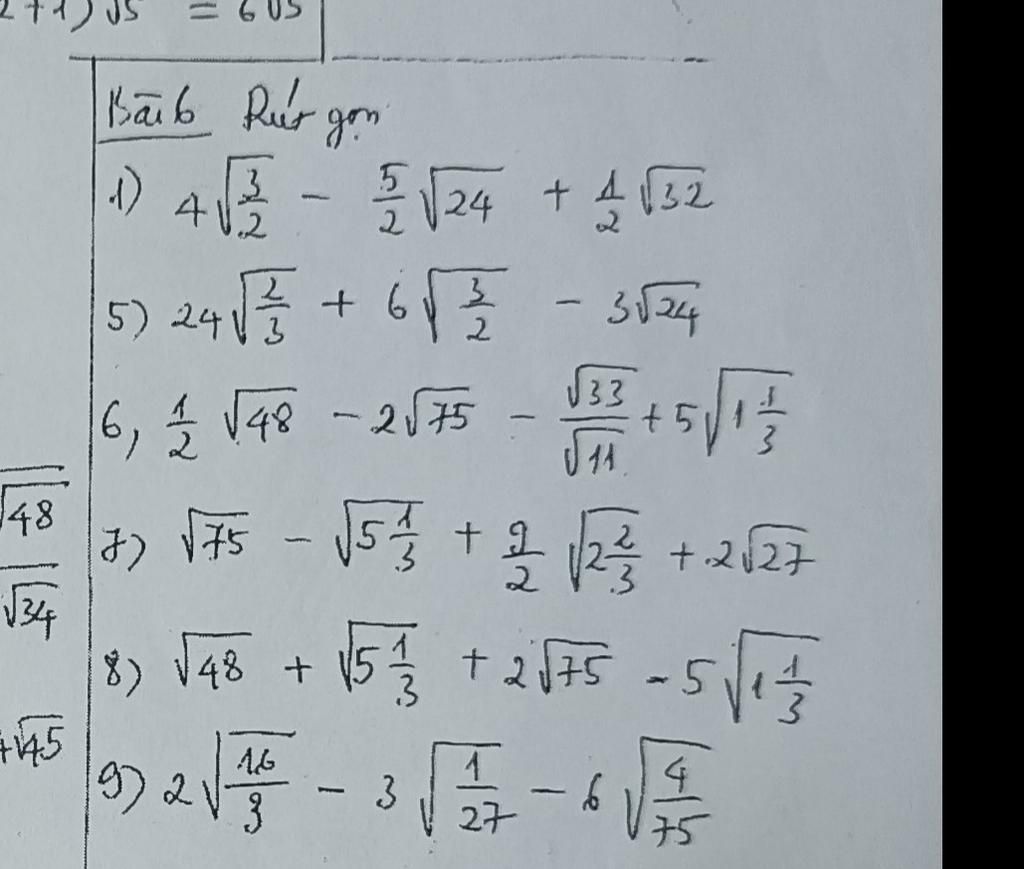 2+1)√5 = 6√5
Bài 6 Rút gọn
1) 4√(3/2) - 5/2 √24 + 1/2 √32
5) 24√(2/3) + 6√(3/2) - 3√24
6, 1/2 √48 - 2√75 - √33/√11 + 5√(1 1/3)
7) √75 - √(5 1/3) + 9/2 √(2 2/3) + 2√27
8) √48 + √(5 1/3) + 2√75 - 5√(1 1/3)
9) 2√(16/3) - 3√(1/27) - 6√(4/75)
√48
√34
+√45